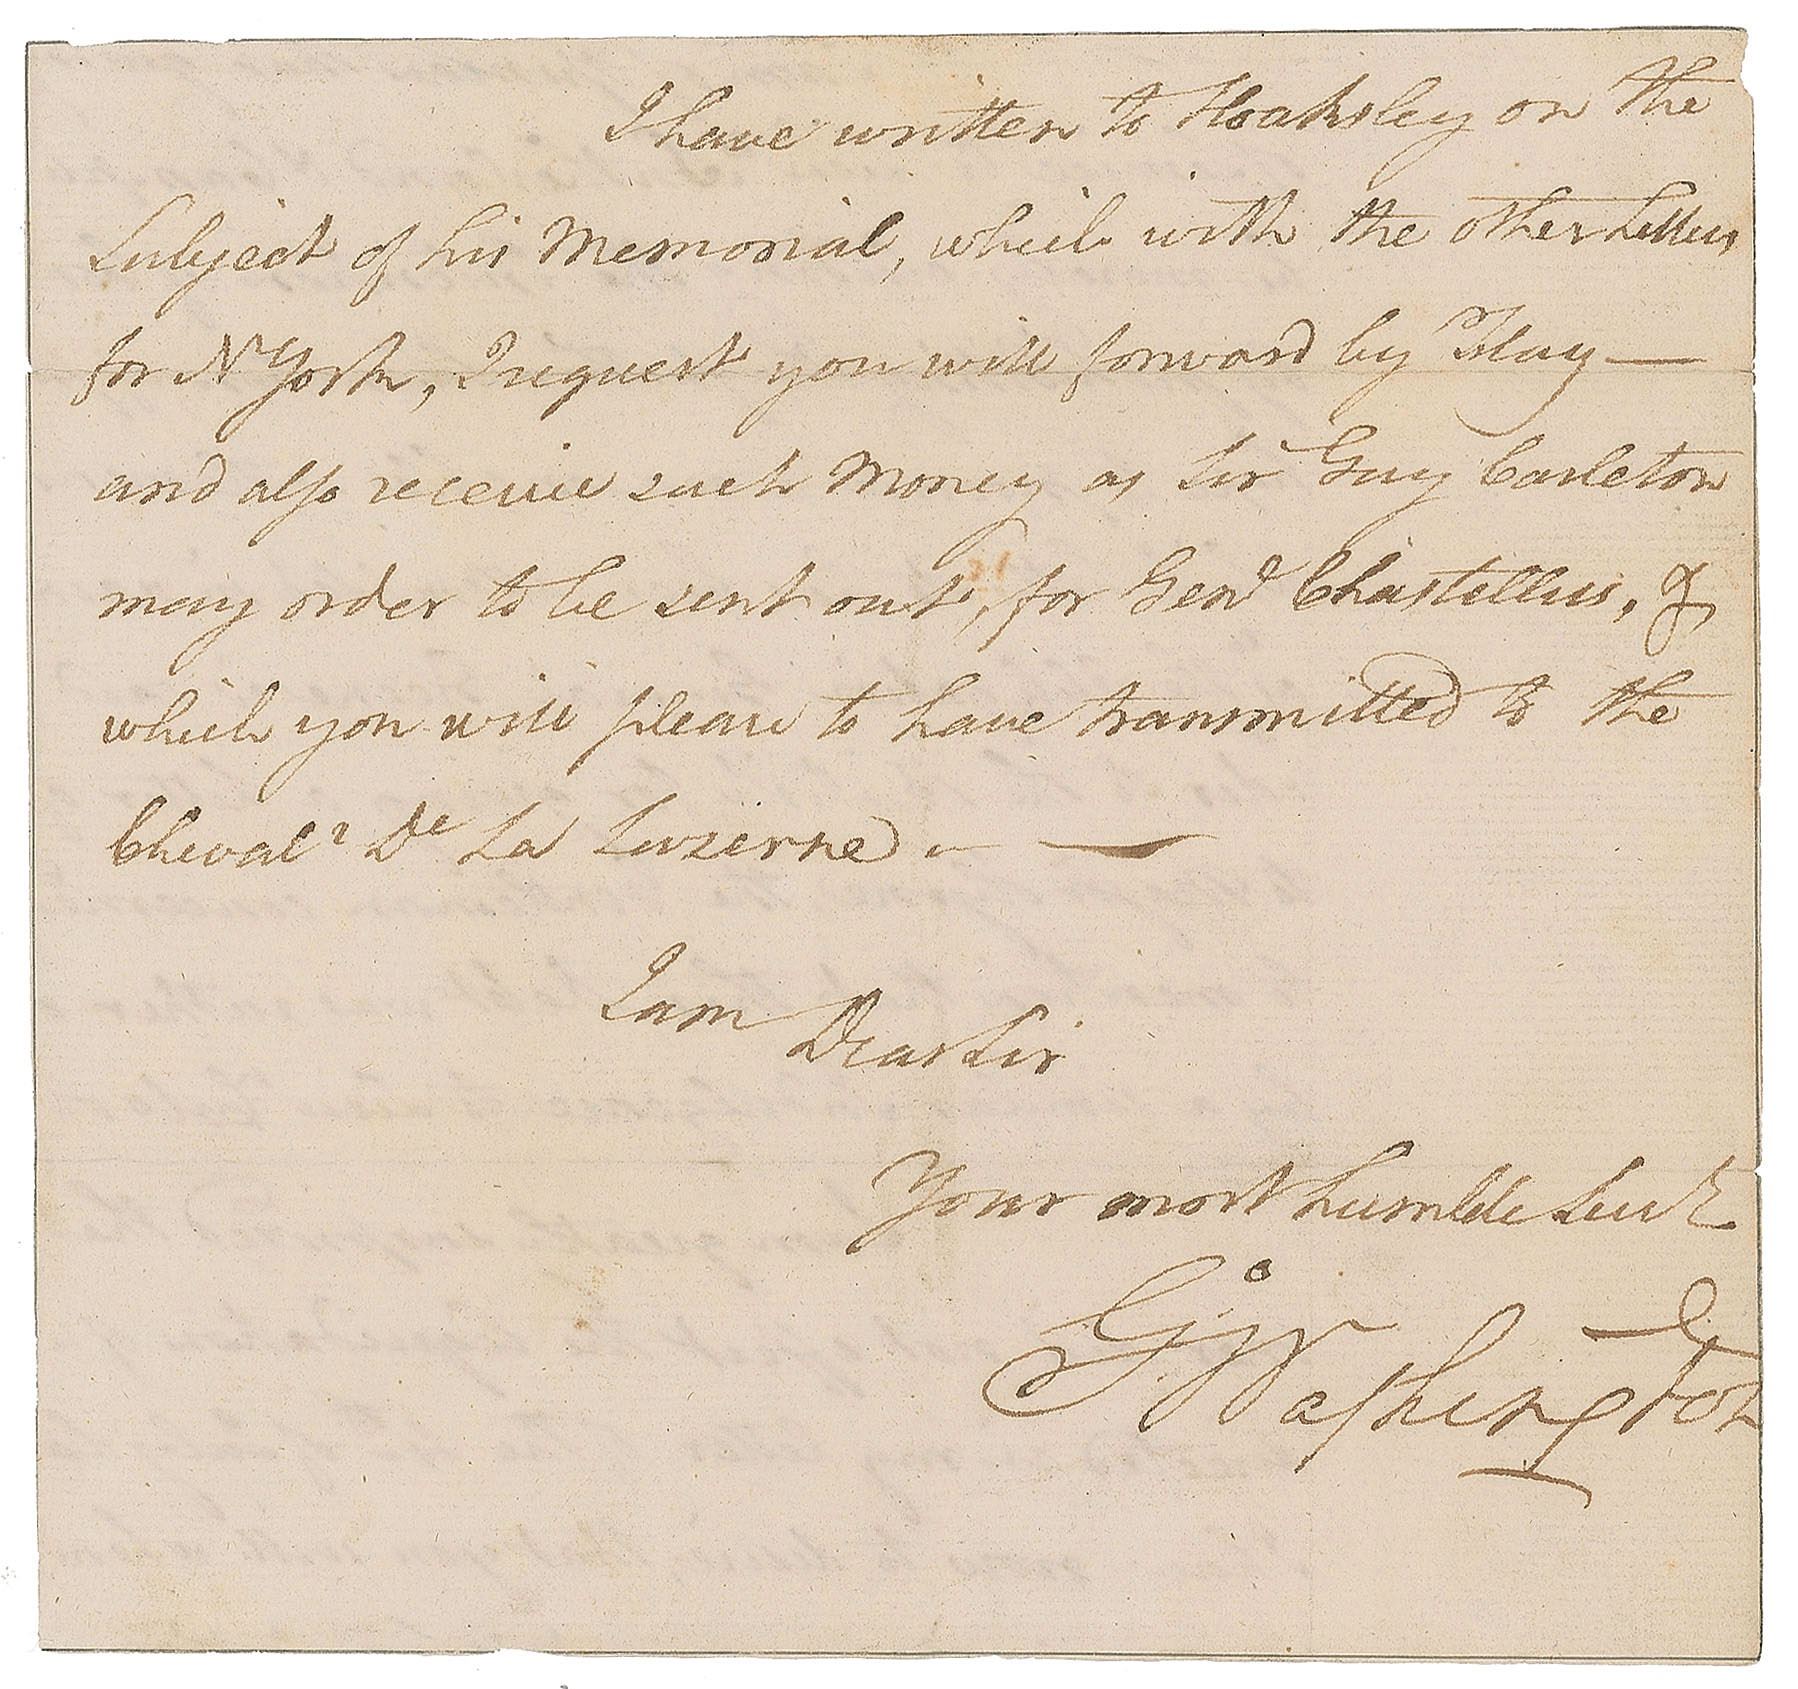 I have written to Hoaksley on the
Subject of his Memorial, which with the other Letters
for N York, I request you will forward by Flag —
and also receive such Money as Sir Guy Carleton
may order to be sent out, for Genl Chastellus, &
which you will please to have transmitted to the
Chevalr De La Luzerne. —
I am
Dear Sir
Your most humble Servt
Go Washington